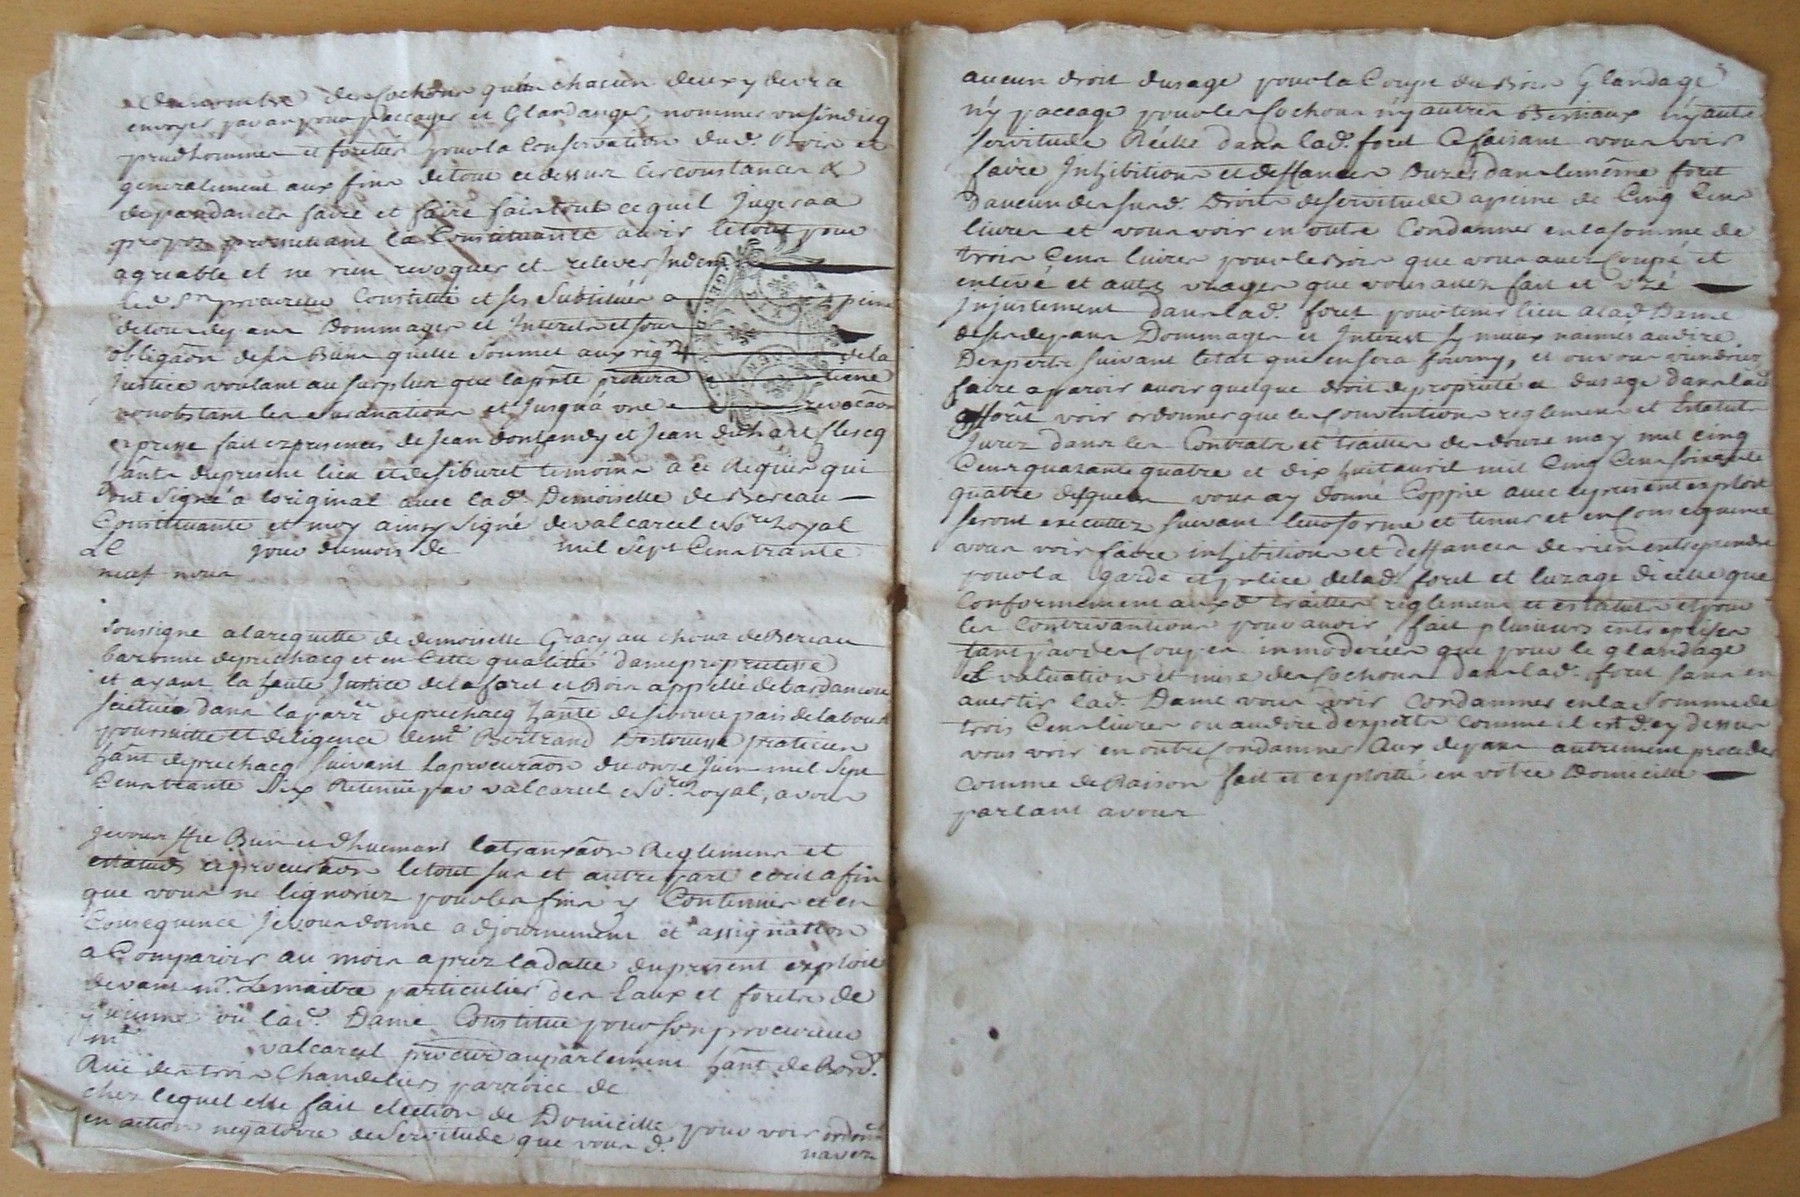 du nombre de cochons qu'un chacun deux y devra
envoyer par an pour paccager et Glandanger, nommer un sindicq
prudhommes et foretier pour la Conservation dud. Bois et
generalement aux fins de tout ce dessus circonstances &
depandances faire et faire faire tout ce quil Jugera a
propoz promettant la Constituante avoir le tout pour
agreable et ne rien revoquer et relever Indem
led Sr procureur Constitué et ses Substitués a peine
de tous depans Dommages et Interets et sous
obligaôn de ses Biens quelle Soumet aux rigrs de la
Justice voulant au surplus que la pñte procura tiene
nonobstant les surannations et Jusqu'a une revocâon
expresse fait ez presences de Jean dontendy et Jean dithart clercq
hânts du present lieu et de siburet temoins a ce Requis qui
ont signé a loriginal avec lad. Demoiselle de Bereau
Constituante et moy ainsy signé de valcarcel Nore Royal
Le jour du mois de mil sept Cens trante
neuf nous
soussigné a la requette de demoiselle Gracy au chous de Bereau
baronne de prechacq et en Cette qualitté dame proprietesse
et ayant la haute Justice de la foret et Bois appellé de bardancou
scitués dans la parre de prechacq hânte de siboure pais de labour
poursuitte et deligence de me Bertrand Destouesse praticien
hânt de prechacq suivant la procuraôn du onze Juin mil Sept
Cens trante Six Retenüe par valcarcel Nore Royal, a vous
Je vous ffie Bien et dhuemant la transâôn Reglemens et
estatuds et procuraôn le tout sus et autre part ecrit afin
que vous ne lignoriez pour les fins y Contenües et en
Consequence Je vous donne adjournement et assignation
a Comparoir au mois aprez la datte du present exploit
devant Mr. Lemaitre particulier des Eaux et forets de
guienne ou lad. Dame Constitue pour son procureur
me valcarcel procur au parlement hânt de Bord.
Ruë des trois Chandeliers parroice de
chez lequel elle fait election de Domicille pour voir ordonr
en action negatoire de Servitude que vous d.
navez
aucun droit dusage pour la Coupe du Bois Glandage
n'y paccage pour les Cochons n'y autres Bestiaux n'y autre
servitude Réélle dans lad. foret Ce faisant vous voir
faire Inhibitions et deffances Duzer dans le même foret
Daucun de susd. Droits de servitude a peine de Cinq Cens
livres et vous voir en outre Condamner en la somme de
trois Cens livres pour le Bois que vous avez Coupé et
enlevé et autre usages que vous avez fait et uzé
Injustement dans lad. foret pour tenir lieu a lad. Dame
de ses depans Dommages et Interest sy mieux naimés au dire
Dexperts suivant letat que en sera fourny, et ou vous viendriez
faire aparoir avoir quelque droit de propriété et dusage dans lad.
fforet voir ordonner que les Conventions reglemens et Estatuts
Jurez dans les Contrats et traittes de douze may mil cinq
Cens quarante quatre et dix huit avril mil Cinq Cens soixante
quatre desquels vous ay donné Coppie avec le present exploit
seront executtez suivant leur forme et tenur et en Consequence
vous voir faire inhibitions et deffances de rien entreprendre
pour la garde et police de lad. foret et luzage dicelle que
Conformement aux d. traittes reglemens et estatuts et pour
les Contrevantions pour avoir fait plusieurs entreprises
tant par des Coupes inmoderées que pour le glandage
Evaluation et mise de Cochons dans lad. foret sans en
avertir lad. Dame vous voir Condamner en la somme de
trois Cens livres ou au dire dexperts comme il est d. cy dessus
vous voir en outre Condamner Aux depans autrement proceder
comme de Raison fait et exploitté en votre Domicille
parlant a vous